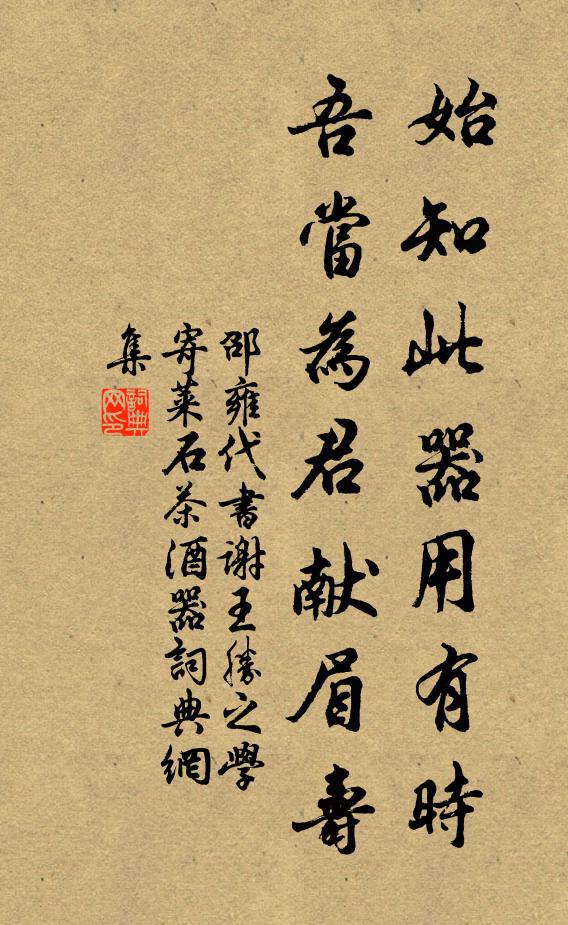 始知此器用有時
吾當為君献眉壽
邵雍代書谢王勝之學
寄莱石茶酒器詞典網
集
詞典
网印